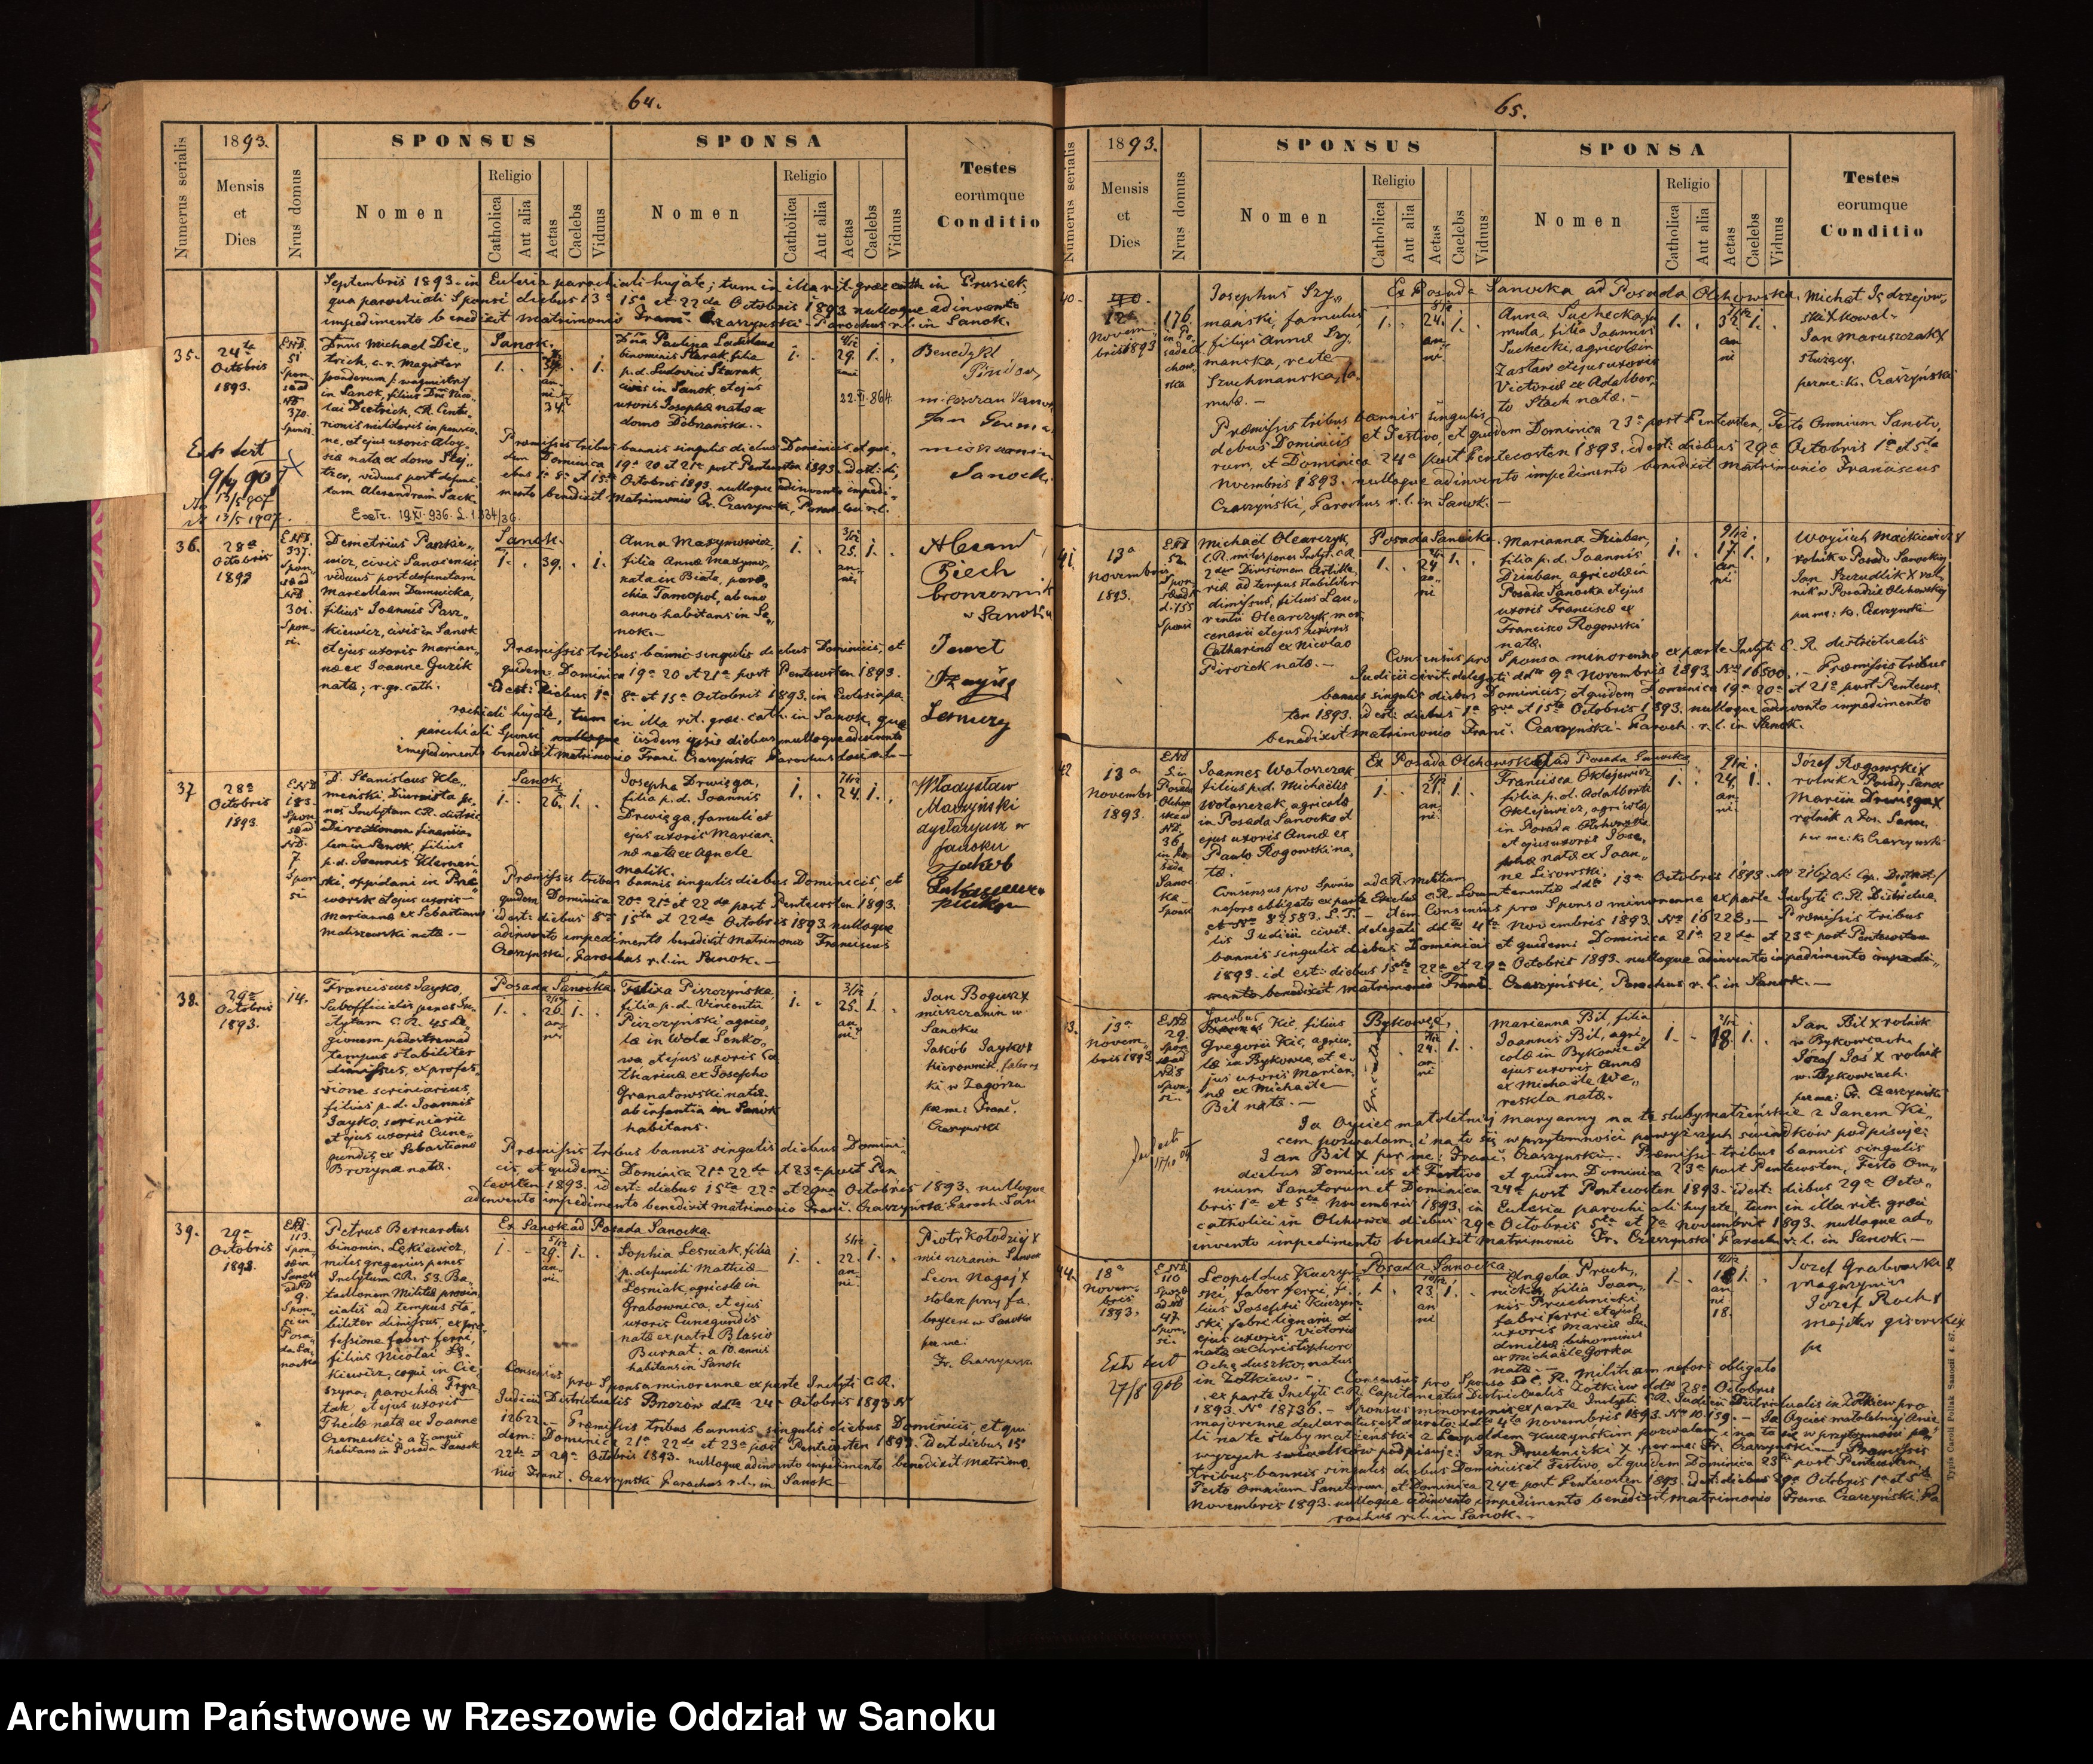 64.
Numerus serialis
1893.
Mensis
et
Dies
Nrus domus
SPONSUS
Nomen
Religio
Catholica
Aut alia
Aetas
Caelebs
Viduus
SPONSA
Nomen
Religio
Catholica
Aut alia
Aetas
Caelebs
Viduus
Testes
eorumque
Conditio
Septembris 1893. in Eclesia parochiali hujate; tum in illa rit. graec. cath. in Prusiek
qua parochiali Sponsi diebus 13a 15a et 22da Octobris 1893 nulloque adinvento
impedimento benedixit matrimonio Franc. Czaszyński - Parochus r. l. in Sanok.
35.
24ta
Octobris
1893.
Sanok.
Dnus Michael Die„
trich, c. r. Magister
ponderum
in Sanok, filius Dni Nico„
lai Dietrich, C.R.
et ejus uxoris Aloy„
sia nata e domo
viduus post defunc„
tam Alexandram Sack.
Dna Paulina Ludovica
binominis Starak, filia
p. d. Ludovici Starak,
civis in Sanok, et ejus
uxoris Josepha nata e
domo Dobrzańska.-
29.
22.XI.864.
Benedykt
Pindor
Jan
Sanok.
Praemissis tribus bannis singulis diebus Dominicis et qui„
dem Dominica 19a 20 et 21a post Pentecosten 1893. id est: di„
ebus 1a 8a et 15ta Octobris 1893. nulloque adinvento impedi„
mento benedixit matrimonio Fr. Czaszyński, Paroch. loci r. l.
Extr. 19.XI.936. L. 1334/36.
13/5 1907.
36.
28a
Octobris
1893
337.
301.
Sanok.
Demetrius Paszkie„
wicz, civis Sanocensis
viduus post defunctam
Marcellam Dumnicka,
filius Joannis Pasz„
kiewicz, civis in Sanok
et ejus uxoris Marian„
nae ex Joanne Guzik
nata; r. gr. cath.
39.
Anna Maxymowicz,
filia Annae Maxymo„
nata in Biała, paro„
chia Tarnopol, ab uno
anno habitans in Sa„
nok.-
25.
Alexand
Piech
bronzownik
w Sanoku
Praemissis tribus bannis singulis diebus Dominicis, et
quidem: Dominica 19a 20 et 21a post Pentecosten 1893.
id est: diebus 1a 8a et 15ta Octobris 1893. in Eclesia pa„
rochiali hujate, tum in illa rit. graec. cath. in Sanok, qua
parochiali Sponsi iisdem ipsis diebus nulloque adinvento
impedimento benedixit matrimonio Franc. Czaszyński Parochus loci r. l.-
37
28a
Octobris
1893.
183.
Sanok.
D. Stanislaus Kle„
meński, Diurnista pe„
nes Inclytam C.R. district.
Directionem financia„
lem in Sanok, filius
p. d. Joannis Klemeń„
ski, oppidani in Prze„
worsk et ejus uxoris
Mariannae ex Sebastiano
Maliszewski nata.-
26.
Josepha Drwięga,
filia p. d. Joannis
Drwięga, famuli et
ejus uxoris Marian„
nae nata ex Agnete
Malik.
24.
Władysław
Marzyński
dyetaryusz w
Sanoku
Jakób
Praemissis tribus bannis singulis diebus Dominicis, et
quidem Dominica 20a 21a et 22da post Pentecosten 1893.
id est: diebus 8va 15ta et 22da Octobris 1893. nulloque
adinvento impedimento benedixit matrimonio Franciscus
Czaszyński, Parochus r. l. in Sanok.-
38.
29a
Octobris
1893.
14.
Posada Sanocka.
Franciscus Jayko,
Subofficialis penes In„
clytam C. R. 45 Le„
gionem pedestrem ad
tempus stabiliter
dimissus, ex profes„
sione scriniarius,
filius p. d. Joannis
Jayko, scriniarii
et ejus uxoris Cune„
gundis ex Sebastiano
Brozyna nata.
26.
Felixa Piszczyńska,
filia p. d. Vincentii
Piszczyński agrico„
lae in Wola Senko„
wa et ejus uxoris Ca
tharinae ex Josepho
Granatowski nata
ab infantia in Sanok
habitans.
25.
Jan Bogusz X
mieszczanin w
Sanoku
Jakób Jayko X
kierownik fabry
ki w Zagórzu
per me: Franc.
Czaszyński
Praemissis tribus bannis singulis diebus Domini„
cis, et quidem: Dominica 21a 22da et 23a post Pen
tecosten 1893. id est: diebus 15ta 22a et 29na Octobris 1893. nulloque
adinvento impedimento benedixit matrimonio Franc. Czaszyński Paroch. San
39.
29a
Octobris
1893.
113.
Ex Sanok ad Posada Sanocka.
Petrus Bernardus
binomin. Lękiewicz,
miles gregarius penes
Inclytum C.R. 53. Ba„
tallionem Militiae provin
cialis ad tempus sta„
biliter dimissus, ex pro„
fessione faber ferri,
filius Nicolai Lę„
kiewicz, coqui in Cie
szyna, parochia Frysz
tak, et ejus uxoris
Theclae nata ex Joanne
Czernecki; a 7. annis
habitans in Posada Sanocka
29.
Sophia Lesniak, filia
p. defuncti Mathiae
Lesniak, agricolae in
Grabownica, et ejus
uxoris Cunegundis
nata ex patre Blasio
Burnat. a 10. annis
habitans in Sanok
22.
Piotr Kołodziej X
mieszczanin Sanok
Leon Nagaj X
stolarz przy fa„
bryce w Sanoku
per me:
Fr. Czaszyński
Consensus pro Sponsa minorenne ex parte Inclyti C.R.
Judicii Districtualis Brzozów ddto 24a Octobris 1893 №
12622.- Praemissis tribus bannis singulis diebus Dominicis, et qui
dem: Dominica 21a 22da et 23a post Pentecosten 1893. id est diebus 15a
22da et 29a Octobris 1893. nulloque adinvento impedimento benedixit matrimo„
nio Franc. Czaszyński Parochus r. l. in Sanok
65.
Numerus serialis
1893.
Mensis
et
Dies
Nrus domus
SPONSUS
Nomen
Religio
Catholica
Aut alia
Aetas
Caelebs
Viduus
SPONSA
Nomen
Religio
Catholica
Aut alia
Aetas
Caelebs
Viduus
Testes
eorumque
Conditio
40.
12a
Novem„
bris 1893
176.
Ex Posada Sanocka ad Posada Olchowska.
Josephus Szy„
mański, famulus,
filius Annae Szy„
manska, recte
Szuchmanska, fa„
mula.-
24.
Anna Suchecka, fa
mula, filia Joannis
Suchecki, agricolae in
Zasław et ejus uxoris
Victoriae ex Adalber„
to Stach nata.-
Michał Jędrzejow„
ski X kowal
Jan Maruszczak X
służący.
per me: k. Czaszyński
Praemissis tribus bannis singulis
diebus Dominicis et Festivo, et quidem Dominica 23a post Pentecosten, Festo Omnium Sancto„
rum, et Dominica 24a post Pentecosten 1893. id est: diebus 29a Octobris 1a et 5ta
Novembris 1893. nulloque adinvento impedimento benedixit matrimonio Franciscus
Czaszyński, Parochus r. l. in Sanok.-
41.
13a
Novembris
1893.
Posada Sanocka.
Michael Olearczyk,
C.R. miles penes Inclyt. C.R.
2dam Divisionem Artille„
riae ad tempus stabiliter
dimissus, filius Lau„
rentii Olearczyk, mer„
cenarii et ejus uxoris
Catharinae ex Nicolao
Pirozek nata.-
24
Marianna Dziuban,
filia p. d. Joannis
Dziuban, agricolae in
Posada Sanocka et ejus
uxoris Franciscae ex
Francisco Rogowski
nata.
17.
Wojciech Mackiewicz X
rolnik w Posadz. Sanockiej
Jan Szczudlik X rol„
nik w Posadzie Olchowskiej
per me: k. Czaszyński
Consensus pro Sponsa minorenne ex parte Inclyti C. R. districtualis
Judicii civit. delegati ddto 9a Novembris 1893. № 16500.- Praemissis tribus
bannis singulis diebus Dominicis, et quidem Dominica 19a 20a et 21a post Pentecos„
ten 1893. id est: diebus 1a 8va et 15ta Octobris 1893. nulloque adinvento impedimento
benedixit matrimonio Franc. Czaszyński - Paroch. r. l. in Sanok.
42
13a
Novembr.
1893.
Ex Posada Olchowska ad Posada Sanocka
Joannes Wotoszczak,
filius p. d. Michaelis
Wotoszczak, agricolae
in Posada Sanocka et
ejus uxoris Annae ex
Paulo Rogowski na„
ta.
21.
Francisca Oklejewicz
filia p. d. Adalberti
Oklejewicz, agricolae
in Posada Olchowska
et ejus uxoris Jose„
pha nata ex Joan„
ne Lisowski.
24.
Józef Rogowski X
rolnik z Posady Sanoc
Marcin Drwięga X
rolnik z Pos. Sanoc.
per me: k. Czaszyński
Consensus pro Sponso ad C.R. militiam
nefors obligato ex parte Excelsi C.R. Locumtenentiae ddto 13a Octobris 1893.
№ 82583. Item Consensus pro Sponso minorenne ex parte Inclyti C.R. Districtua
lis Judicii civit. delegati ddto 4ta Novembris 1893. № 16223.- Praemissis tribus
bannis singulis diebus Dominicis et quidem: Dominica 21a 22da et 23a post Pentecosten
1893. id est: diebus 15ta 22a et 29a Octobris 1893. nulloque adinvento impedimento
benedixit matrimonio Franc. Czaszyński, Parochus r. l. in Sanok.-
13a
Novem„
bris 1893.
Bykowce,
Jacobus
Kic, filius
Gregorii Kic, agrico„
lae in Bykowce, et e„
jus uxoris Marian„
nae ex Michaele
Bil nata.-
24.
Marianna Bil, filia
Joannis Bil, agri„
colae in Bykowce et
ejus uxoris Annae
ex Michaele We„
reskla nata.
18.
Jan Bil X rolnik
w Bykowcach
Józef Joś X rolnik
w Bykowcach.
per me: Fr. Czaszyński
Ja Ojciec małoletniej Maryanny na te śluby małżeńskie z Janem Ki„
cem pozwalam, i na to się w przytomności powyższych swiadków podpisuję:
Jan Bil X per me: Franc. Czaszyński.- Praemissis tribus bannis singulis
diebus Dominicis et Festivo et quidem Dominica 23a post Pentecosten, Festo Om„
nium Sanctorum et Dominica 24a post Pentecosten 1893. id est: diebus 29a Octo„
bris 1a et 5ta Novembris 1893. in Eclesia parochiali hujate, tum in illa rit. graeci
catholici in Olchowce diebus 29a Octobris 5ta et 7a Novembris 1893. nulloque ad„
invento impedimento benedixit matrimonio Fr. Czaszyński Paroch. r. l. in Sanok.-
44.
18a
Novem„
bris
1893.
110
47.
Posada Sanocka
Leopoldus Kuczyń„
ski, faber ferri, fi„
lius Josephi Kuczyń„
ski fabri lignarii et
ejus uxoris Victoriae
nata ex Christophoro
natus
in Żółkiew.-
23.
Angela Pruch„
nicka, filia Joan„
nis Pruchnicki
fabri ferri et ejus
uxoris Mariae Lu„
dmilae binominis
ex Michaele Gorka
nata.-
18.
Jozef Grabowski X
magazynier
Jozef Roch X
majster giserski X
Extr. fecit
27/8 906
Consensus pro Sponso ad C. R. Militiam nefors obligato
ex parte Inclyti C.R. Capitaneatus Districtualis Żółkiew ddto 28a Octobris
1893. № 18736.- Sponsus minorennis ex parte Inclyti C.R. Judicii Districtualis in Żółkiew pro
majorenne declaratus est decreto ddto 4ta Novembris 1893. № 10.159.- Ja Ojciec małoletniej Anie
li na te śluby małżeńskie z Leopoldem Kuczyńskim pozwalam i na to się w przytomności po„
wyższych swiadków podpisuję: Jan Pruchnicki X per me: Fr. Czaszyński.- Praemissis
tribus bannis singulis diebus Dominicis et Festivo, et quidem Dominica 23a post Pentecosten,
Festo Omnium Sanctorum, et Dominica 24a post Pentecosten 1893. id est: diebus 29a Octobris 1a et 5ta
Novembris 1893. nulloque adinvento impedimento benedixit matrimonio Franc. Czaszyński Pa
rochus r. l. in Sanok.-
Typis Caroli Pollak Sanocii
Archiwum Państwowe w Rzeszowie Oddział w Sanoku